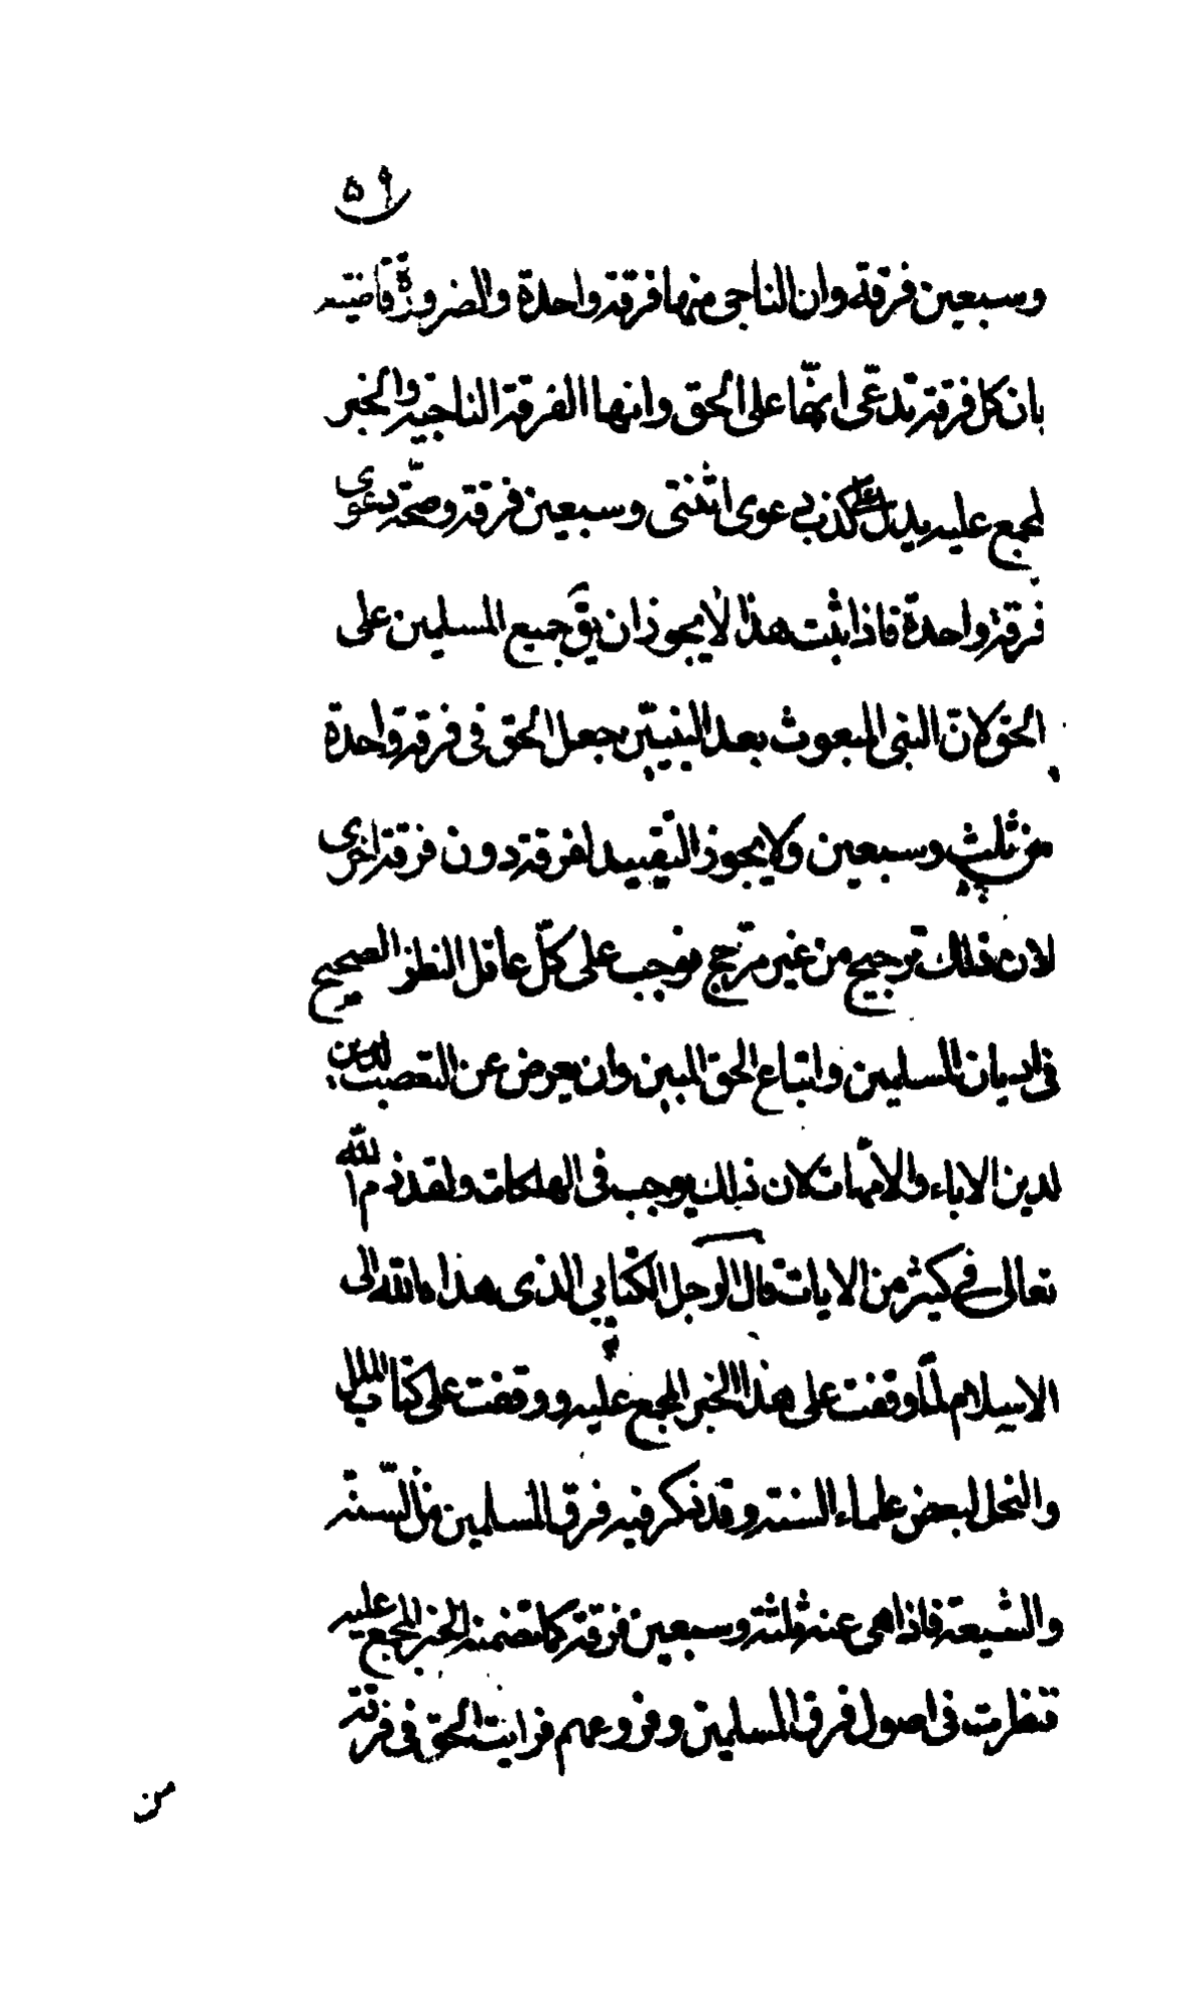 ٥٩
وسبعين فرقة وان الناجى منها فرقة واحدة والضرورة قاضية
بان كل فرقة تدّعى انّها على الحق وانها الفرقة الناجية والخبر
المجمع عليه يدل على كذب دعوى اثنتى وسبعين فرقة وصحّة دعوى
فرقة واحدة فاذا ثبت هذا لا يجوز ان يق جميع المسلمين على
الحق لانّ النبى المبعوث بعد النبيين جعل الحق فى فرقة واحدة
من ثلث وسبعين ولا يجوز التقييد لفرقة دون فرقة اخرى
لان ذلك ترجيح من غير مرّجح فوجب على كلّ عاقل النظر الصحيح
فى اديان المسلمين واتباع الحق المبين وان يعرض عن التعصب لدين
لدين الاباء والامّهات لان ذلك يوجب فى الهلكات ولقد ذم الله
تعالى فى كثير من الايات قال الرجل الكتابى الذى هذاه الله الى
الاسلام لمّا وقفت على هذا الخبر المجمع عليه ووقفت على كتاب الملل
والنحل لبعض علماء السنة وقد ذكر فيه فرق المسلمين من السّنة
والشيعة فاذا هى عنه ثلثة وسبعين فرقة كما تضمنه الخبر المجمع عليه
فنظرت فى اصول فرق المسلمين وفروعهم فرايت الحق فى فرقة
من